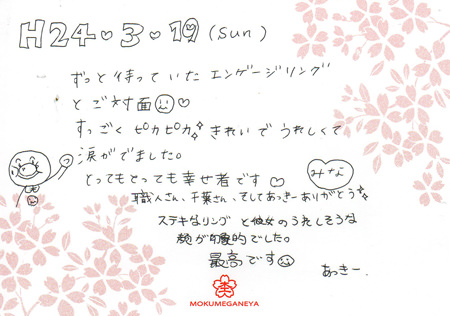 H24♡3♡19(sun)
ずっと待っていたエンゲージリング
とご対面♡
すっごくピカピカきれいでうれしくて
涙がでました。
とってもとっても幸せ者です♡
みな
職人さん、千葉さん、そしてあっきーありがとう
ステキなリングと彼女のうれしそうな
顔が印象的でした。
最高です
あっきー.
MOKUMEGANEYA